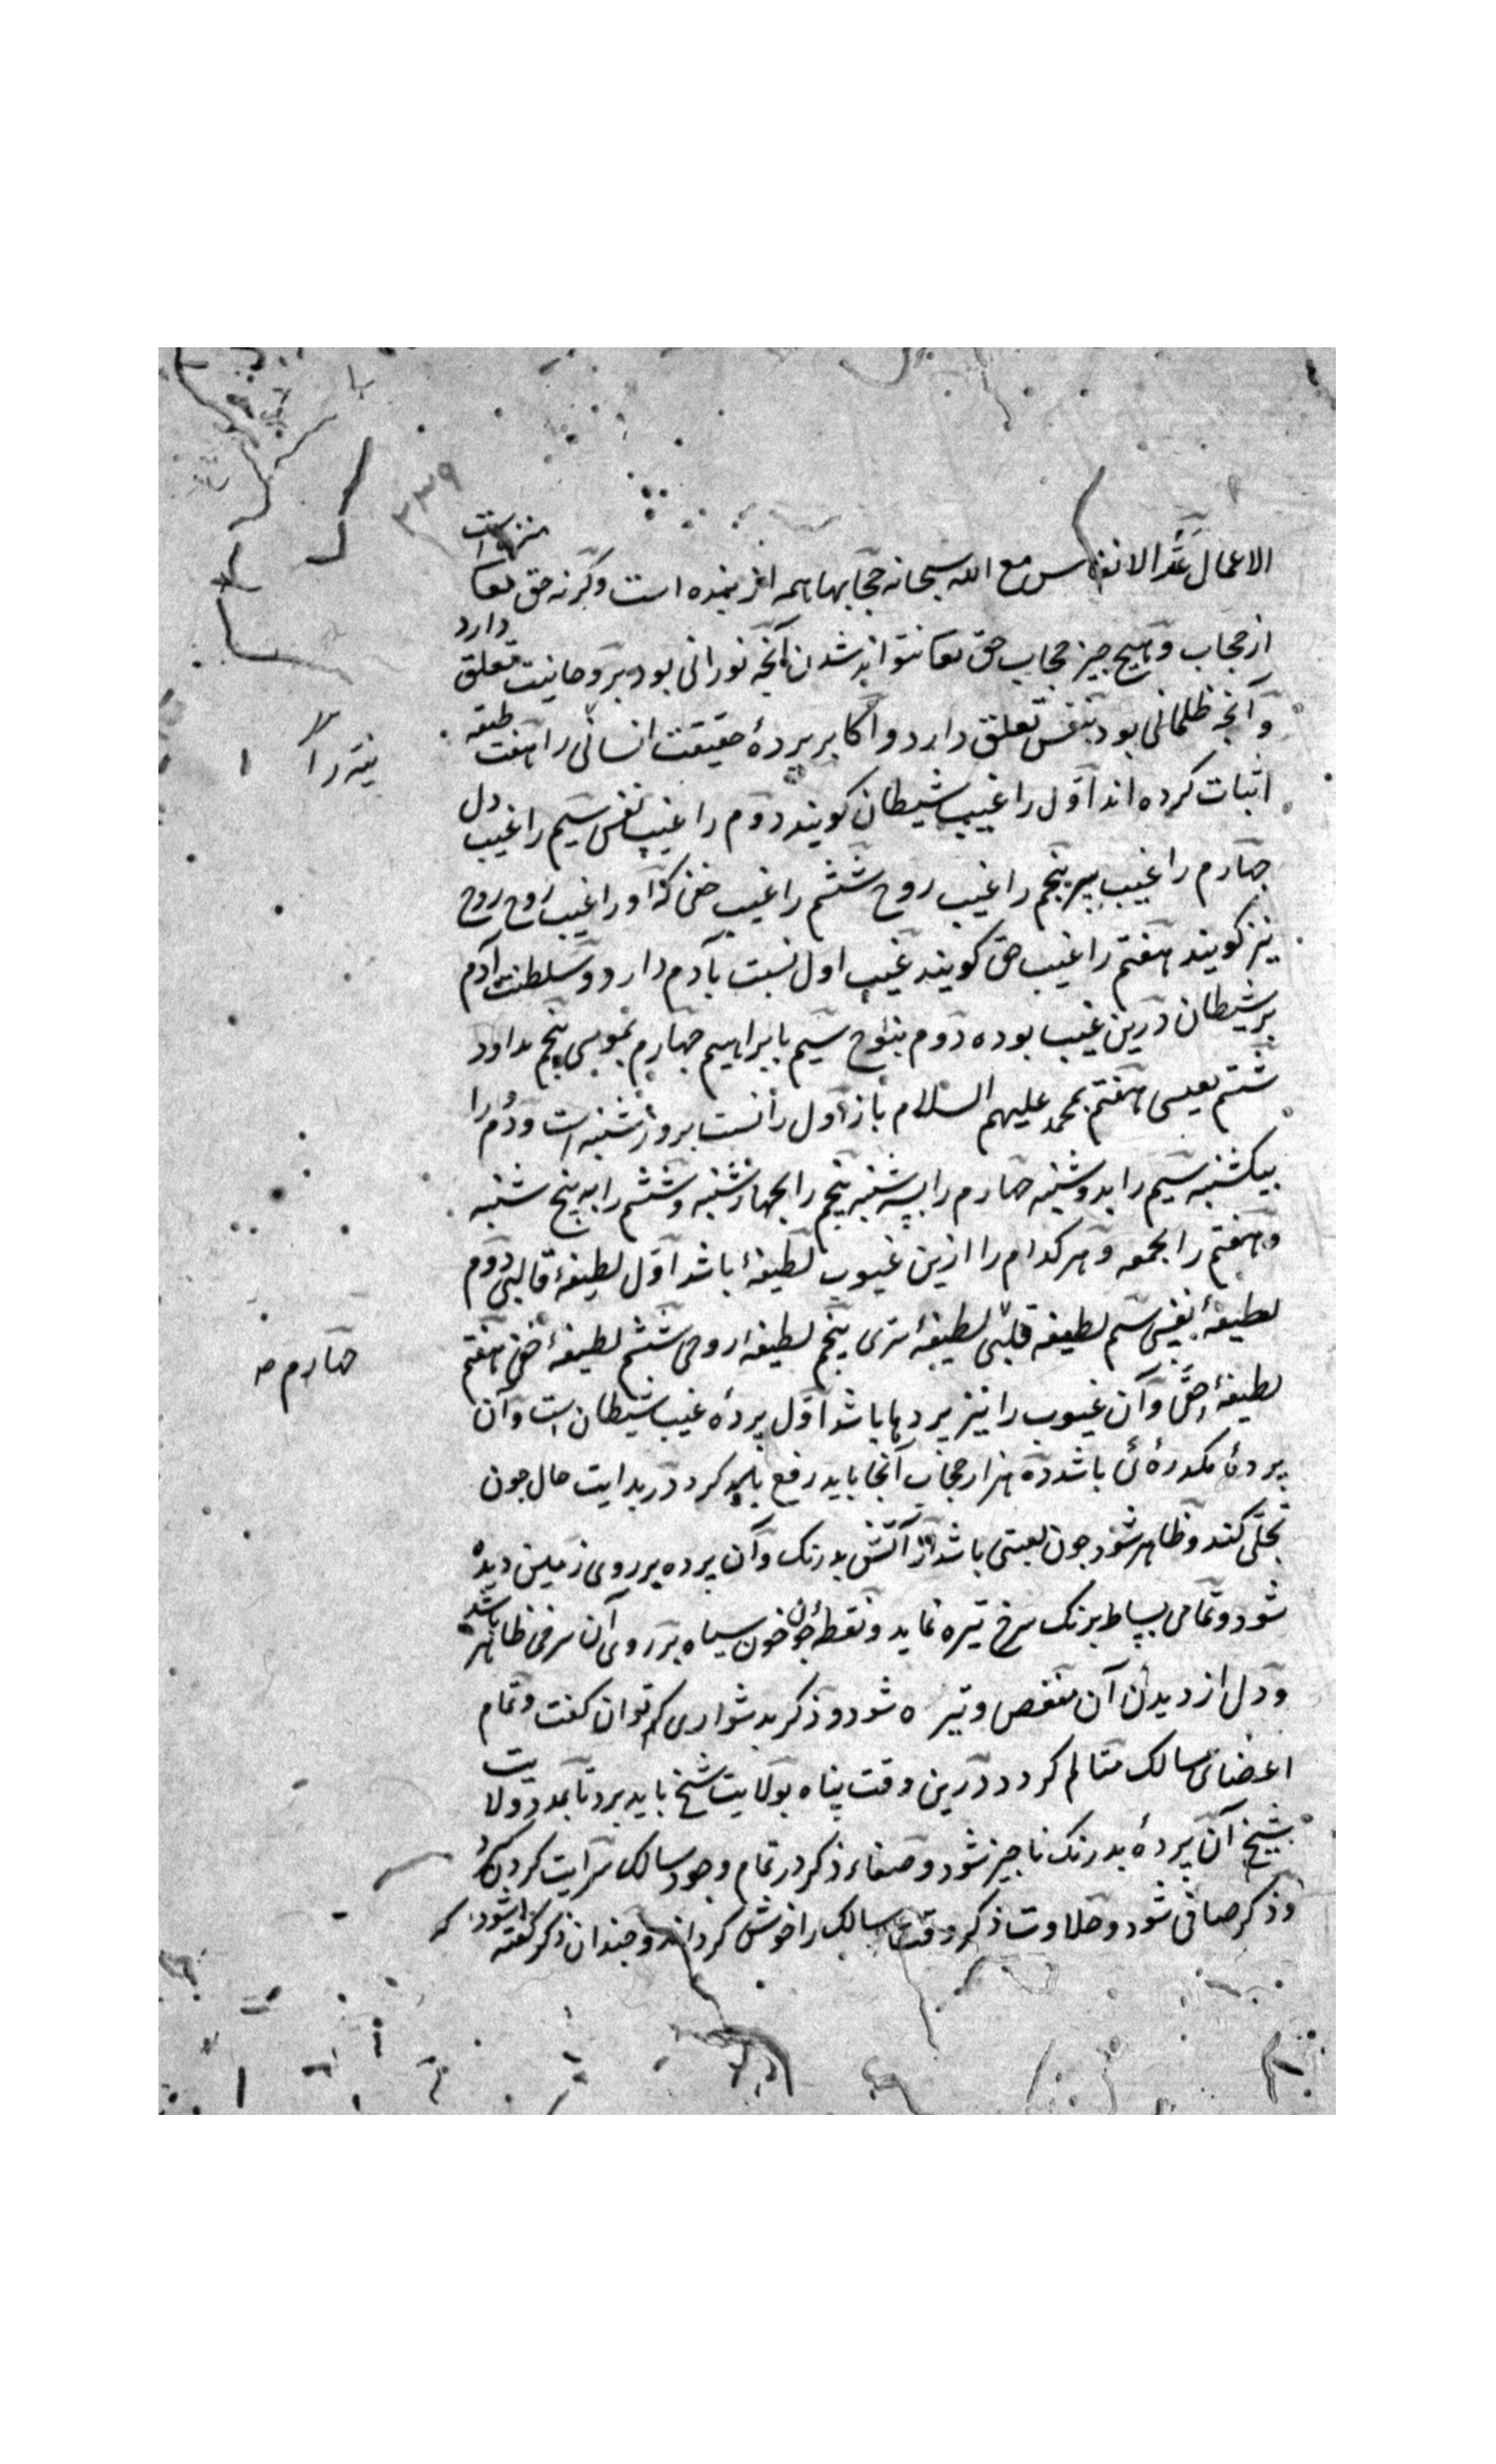 ۳۳۹
الاعمال عدّ الانفاس مع الله سبحانه حجابها همه از بنده است وگرنه حق تعا منزه است
از حجاب و هیچ چیز حجاب حق تعا نتواند شدن آنچه نورانی بود بروحانیت تعلق دارد
و آنچه ظلمانی بود بنفس تعلق دارد و اکابر پردهٔ حقیقت انسانی را هفت طبقه
اثبات کرده اند اوّل را غیب شیطان کویند دوم را غیب نفس سیم را غیب دل
چهارم را غیب سر پنجم را غیب روح ششم را غیب خفی که او را غیب روح روح
نیز کویند هفتم را غیب حق کویند غیب اول نسبت بآدم دارد و سلطنت آدم
بر شیطان درین غیب بوده دوم بنوح سیم بابراهیم چهارم بموسی پنجم بداود
ششم بعیسی هفتم بمحمد علیهم السلام باز اول را نسبت بروز شنبه است و دوم را
بیکشنبه سیم را بدوشنبه چهارم را بسه شنبه پنجم را بچهارشنبه و ششم را به پنج شنبه
و هفتم را بجمعه و هر کدام را ازین غیوب لطیفهٔ باشد اوّل لطیفهٔ قالبی دوم
لطیفهٔ نفسی سیم لطیفه قلبی لطیفهٔ سری پنجم لطیفهٔ روحی ششم لطیفهٔ خفی هفتم
چهارم صح
لطیفهٔ حقی و آن غیوب را نیز پردها باشد اوّل پردهٔ غیب شیطان است و آن
پردهٔ مکدرهٔ باشد ده هزار حجاب آنجا باید رفع باید کرد در بدایت حال چون
تجلی کند و ظاهر شود چون لعبتی باشد از آتش بدرنک و آن پرده بر روی زمین دیده
شود و تمامی بساط برنک سرخ تیره نماید و نقطهٔ چون خون سیاه بر روی آن سرخی ظاهر باشد
و دل از دیدن آن منغص و تیره شود و ذکر بدشواری کم توان کفت و تمام
اعضای سالک متالم کردد درین وقت پناه بولایت شیخ باید برد تا بمدد ولایت
شیخ آن پردهٔ بدرنک ناچیز شود و صفاء ذکر در تمام وجود سالک سرایت کردن کرد
و ذکر صافی شود و حلاوت ذکر وقت سالک را خوش کرداند و چندان ذکر کفته شود که